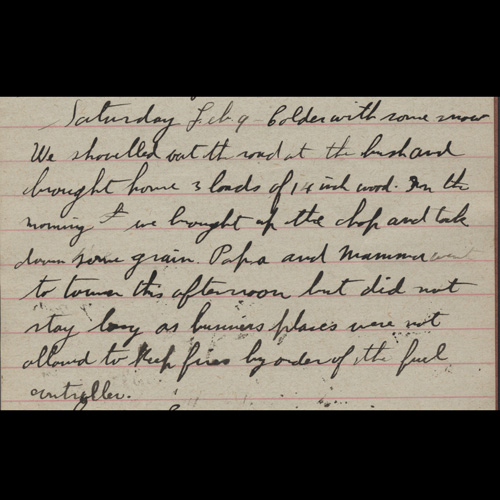 Saturday Feb. 9 - Colder with some snow
We shovelled out the road at the bush and
brought home 3 loads of 14 inch wood. In the
morning we brought up the chop and took
down some grain. Papa and Mamma went
to town this afternoon but did not
stay long as business places were not
allowed to keep fires by order of the fuel
controller.